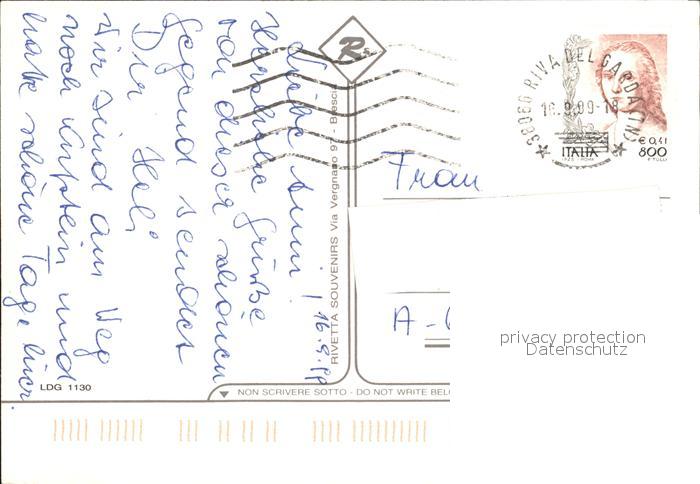 Liebe Anni!
16.9.99
Herzliche Grüsse
von dieser schönen
Gegend sendet
Dir Heli
Wir sind am Weg
nach Kufstein und
hatte schöne Tage hier.
LDG 1130
RS
RIVETTA SOUVENIRS Via Vergnano 97 - Brescia
NON SCRIVERE SOTTO - DO NOT WRITE BEL
38066 RIVA DEL GARDA (TN)
16.9.99-18
ITALIA
€ 0,41
800
Frau
A-
privacy protection
Datenschutz